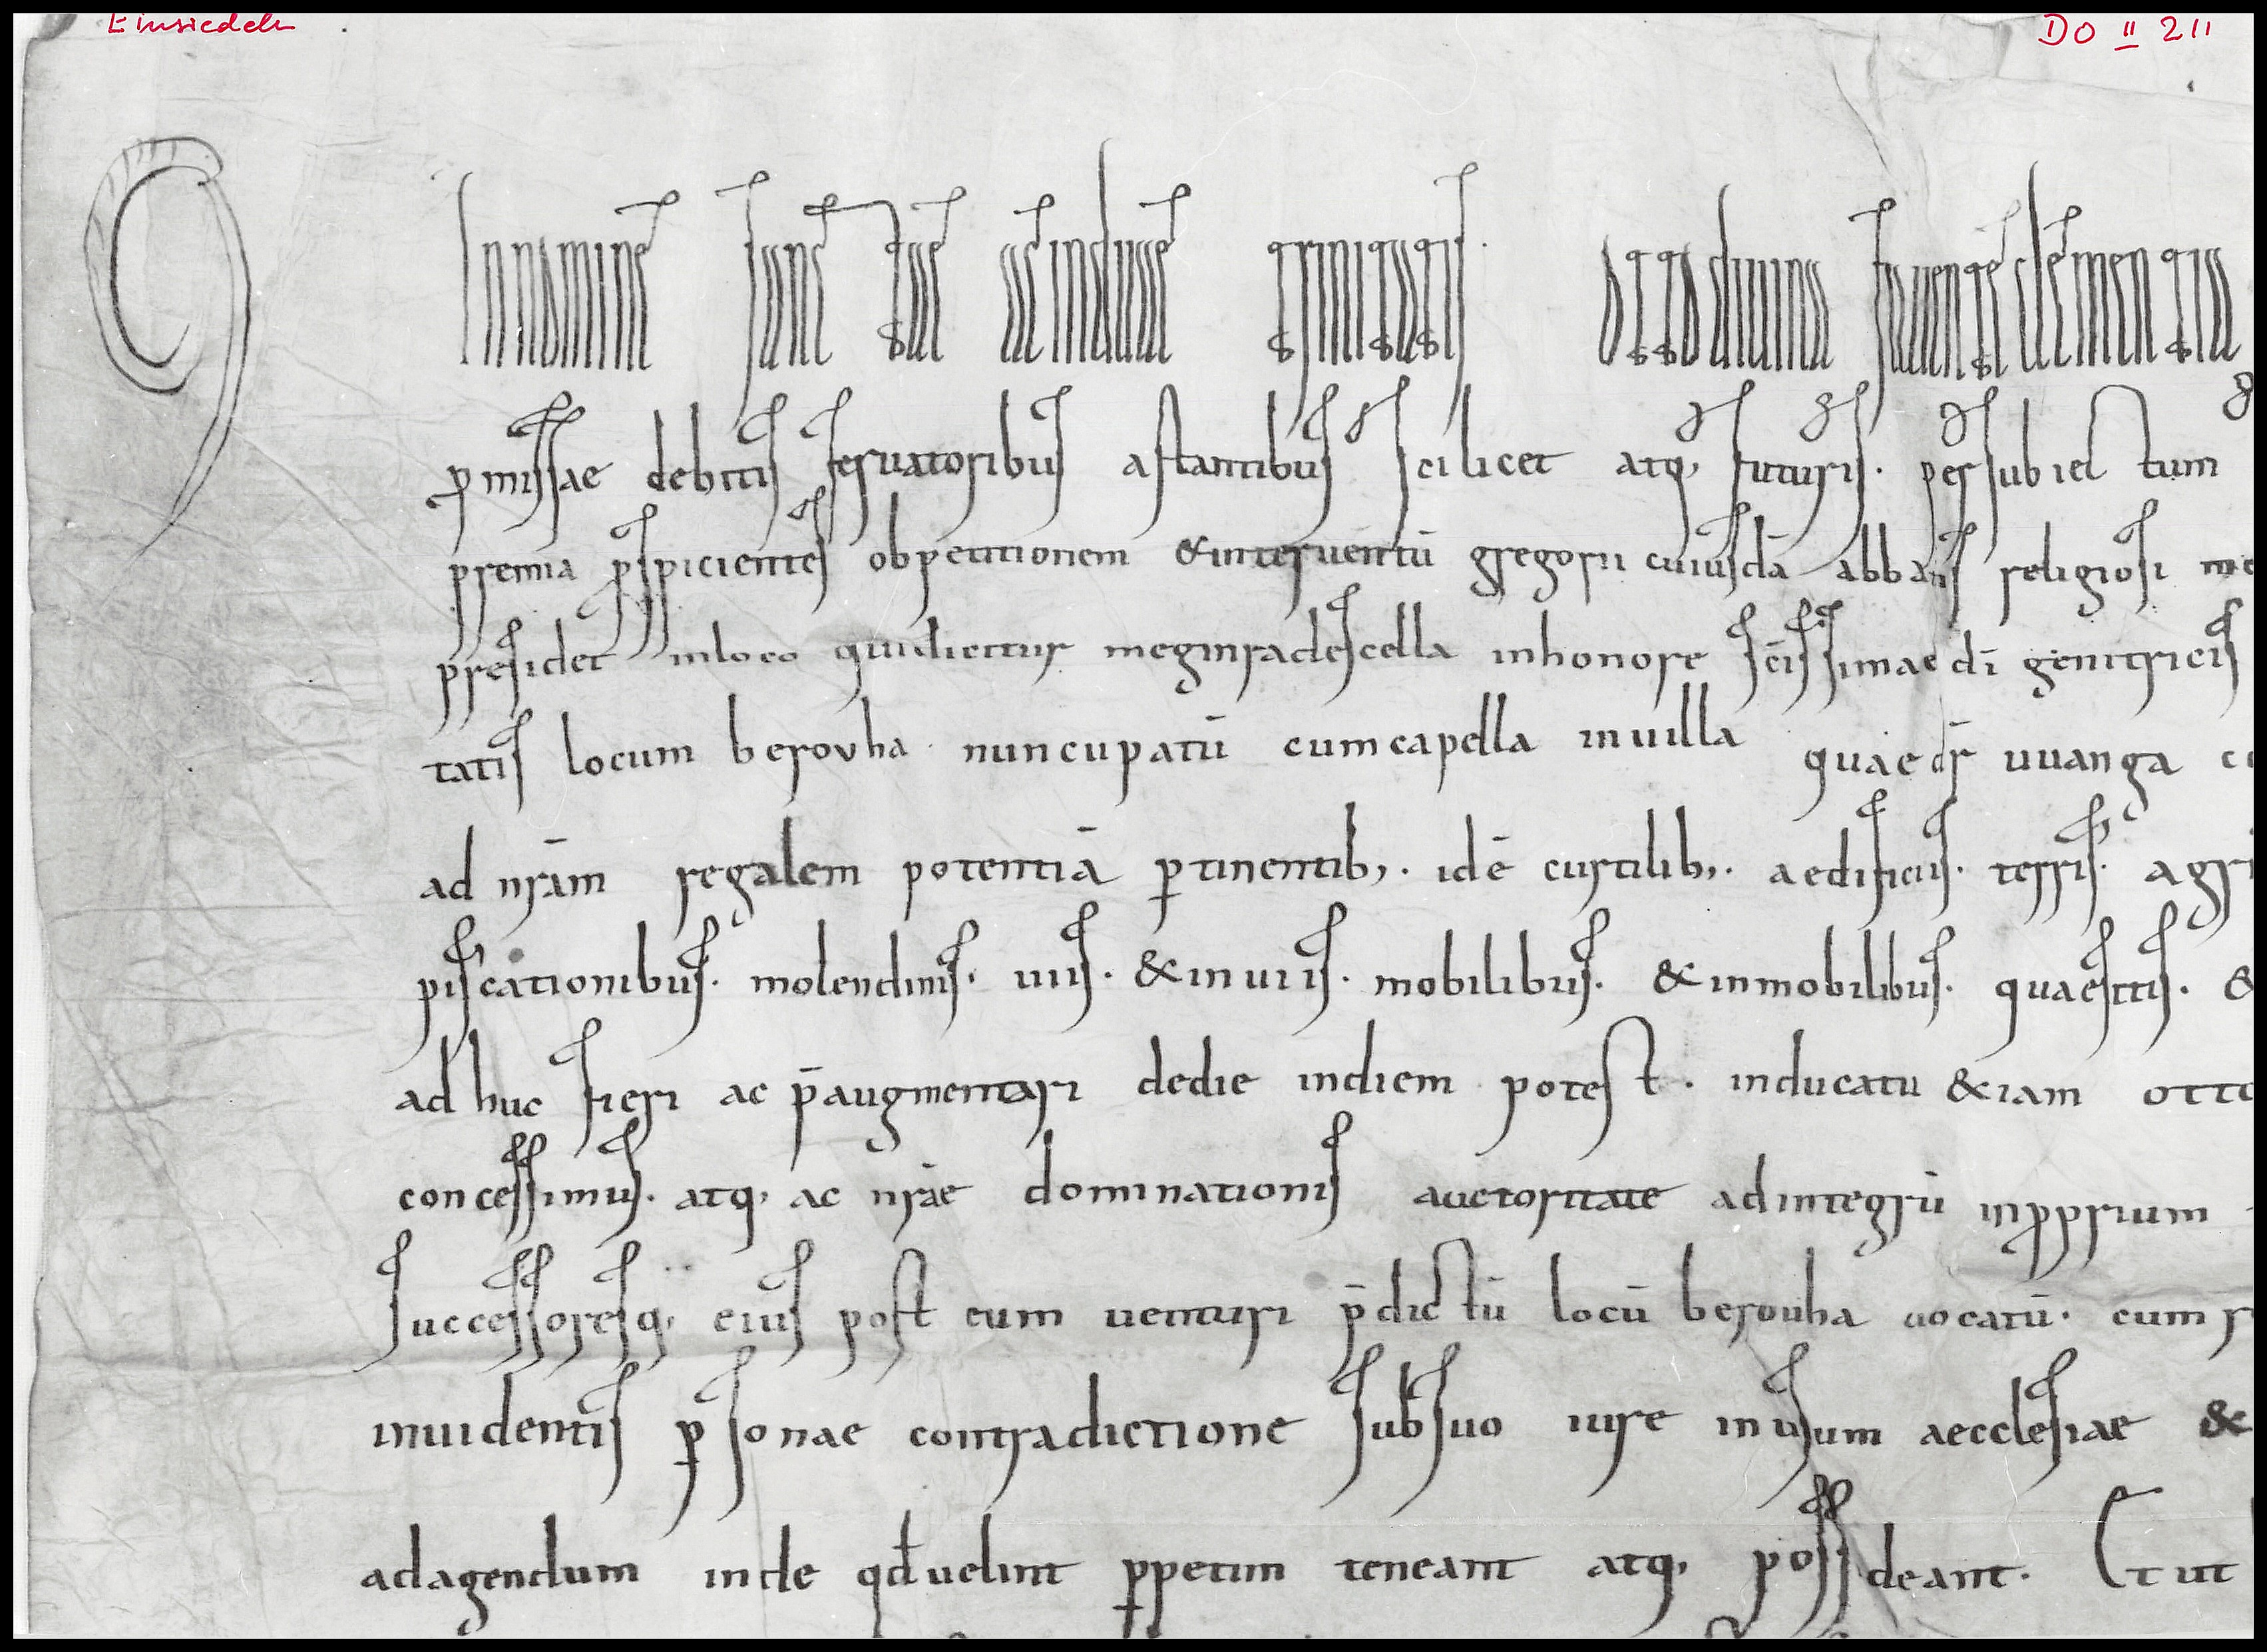 Einsiedeln DO II 211
In nomine sanctae et individuae trinitatis. Otto divina favente clementia
p̄missae debitis seruatoribus astantibus scilicet atq; futuris. per subiectum
premia prospicientes ob petitionem & interuentū gregorii cuiusdā abbatis religiosi
presidet in loco qui dicitur meginradescella in honore sc̄issimae dī genitricis
tatis locum berouha nuncupatū cum capella in uilla quae dr̄ uuanga
ad nrām regalem potentiā ꝑtinentib;. idē curtilib;. aedificiis. terris.
piscationibus. molendinis. uiis. & inuiis. mobilibus. & inmobilibus. quaesitis. &
adhuc fieri ac p̄augmentari de die in diem potest. in ducatu &iam
concessimus. atq; ac nrāe dominationis auctoritate ad integrū in ꝓprium
successoresq; eius post eum uenturi p̄dictū locū berouha uocatū. cum
inuidentis ꝑsonae contradictione sub suo iure in usum aecclesiae &
ad agendum inde qđ uelint ꝑpetim teneant atq; possideant. Et ut